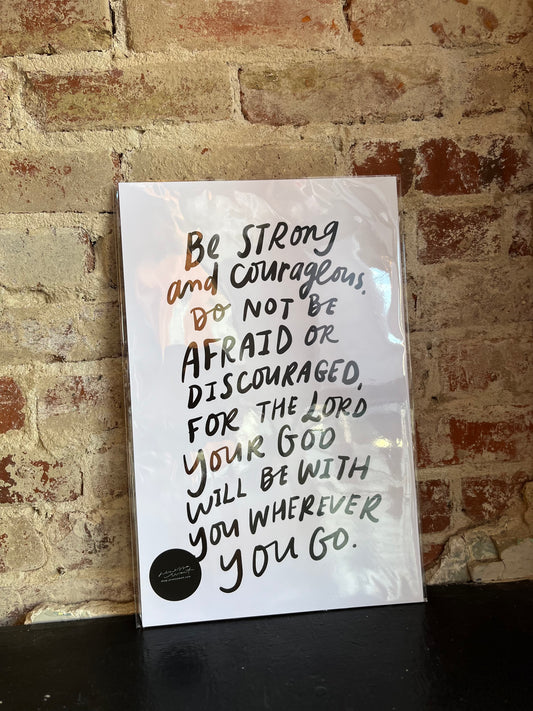 Be STRong
and courageous.
Do NOT BE
AFRAID OR
DISCOURAGED,
FOR THE LORD
YOUR GOD
WILL BE WITH
YOU WHEREVER
YOU GO.